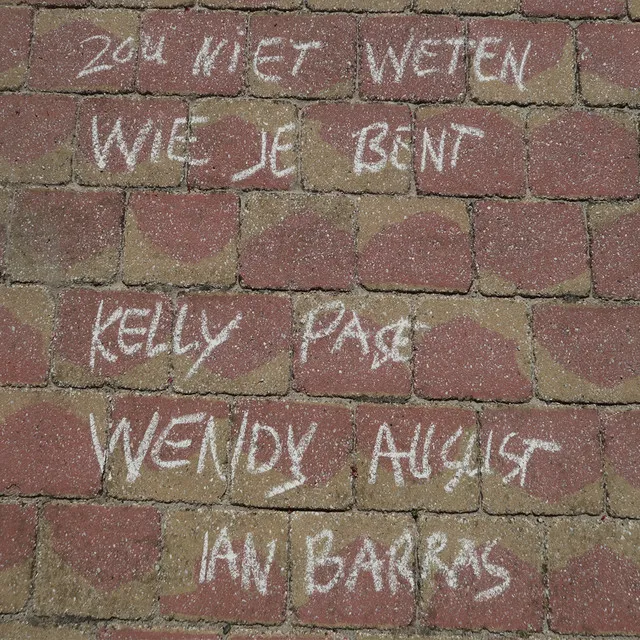 ZOU NIET WETEN
WIE JE BENT
KELLY PAGE
WENDY AUGUST
IAN BARRAS